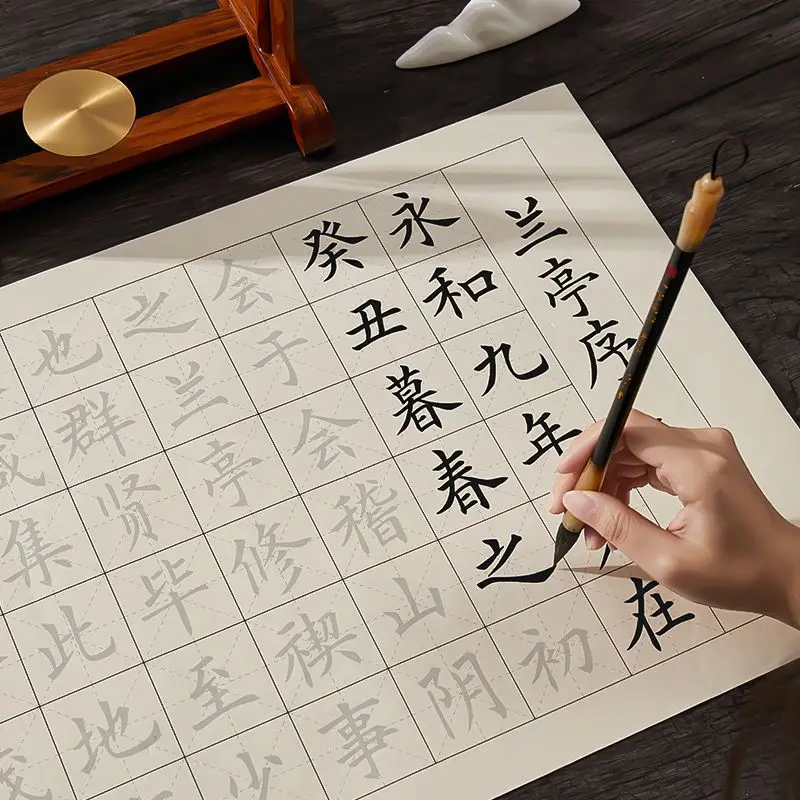 兰亭序
永和九年在
癸丑暮春之初
会于会稽山阴
之兰亭修禊事
也群贤毕至少
咸集此地